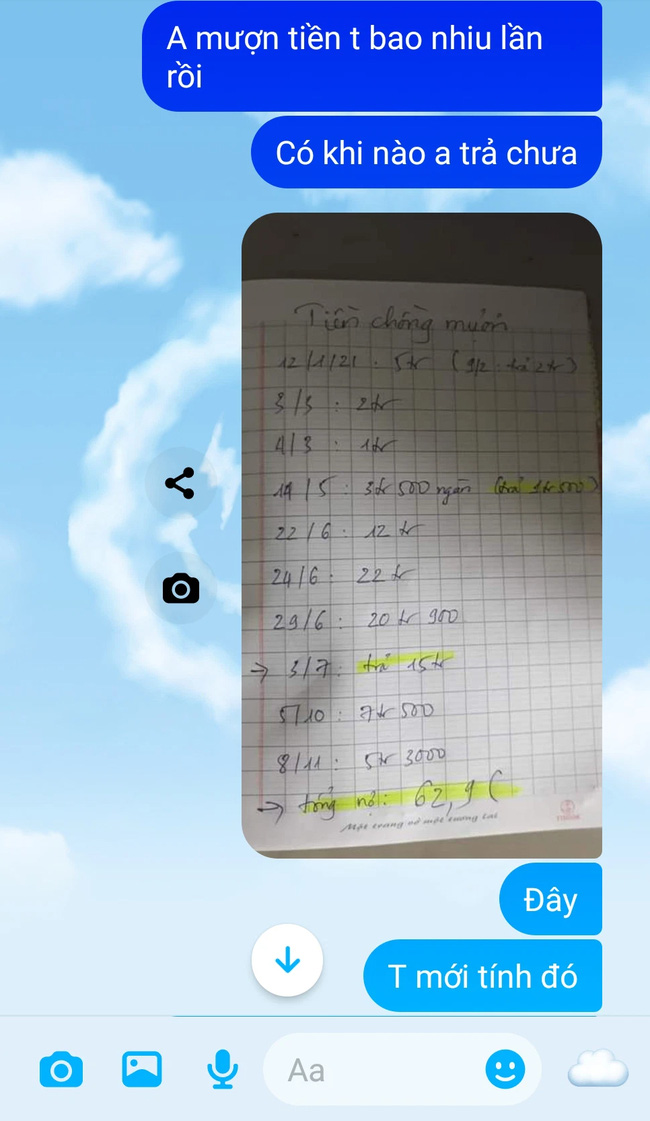 A mượn tiền t bao nhiu lần
rồi
Có khi nào a trả chưa
Tiền chồng mượn
12/1/21 : 5tr (9/2 : trả 2tr)
3/3 : 2tr
4/3 : 1tr
14/5 : 3tr 500 ngàn (trả 1tr500)
22/6 : 12 tr
24/6 : 22 tr
29/6 : 20 tr 900
→ 3/7 : trả 15tr
5/10 : 7tr 500
8/11 : 5tr 3000
→ tổng nợ : 62,9 (
Đây
T mới tính đó
Aa